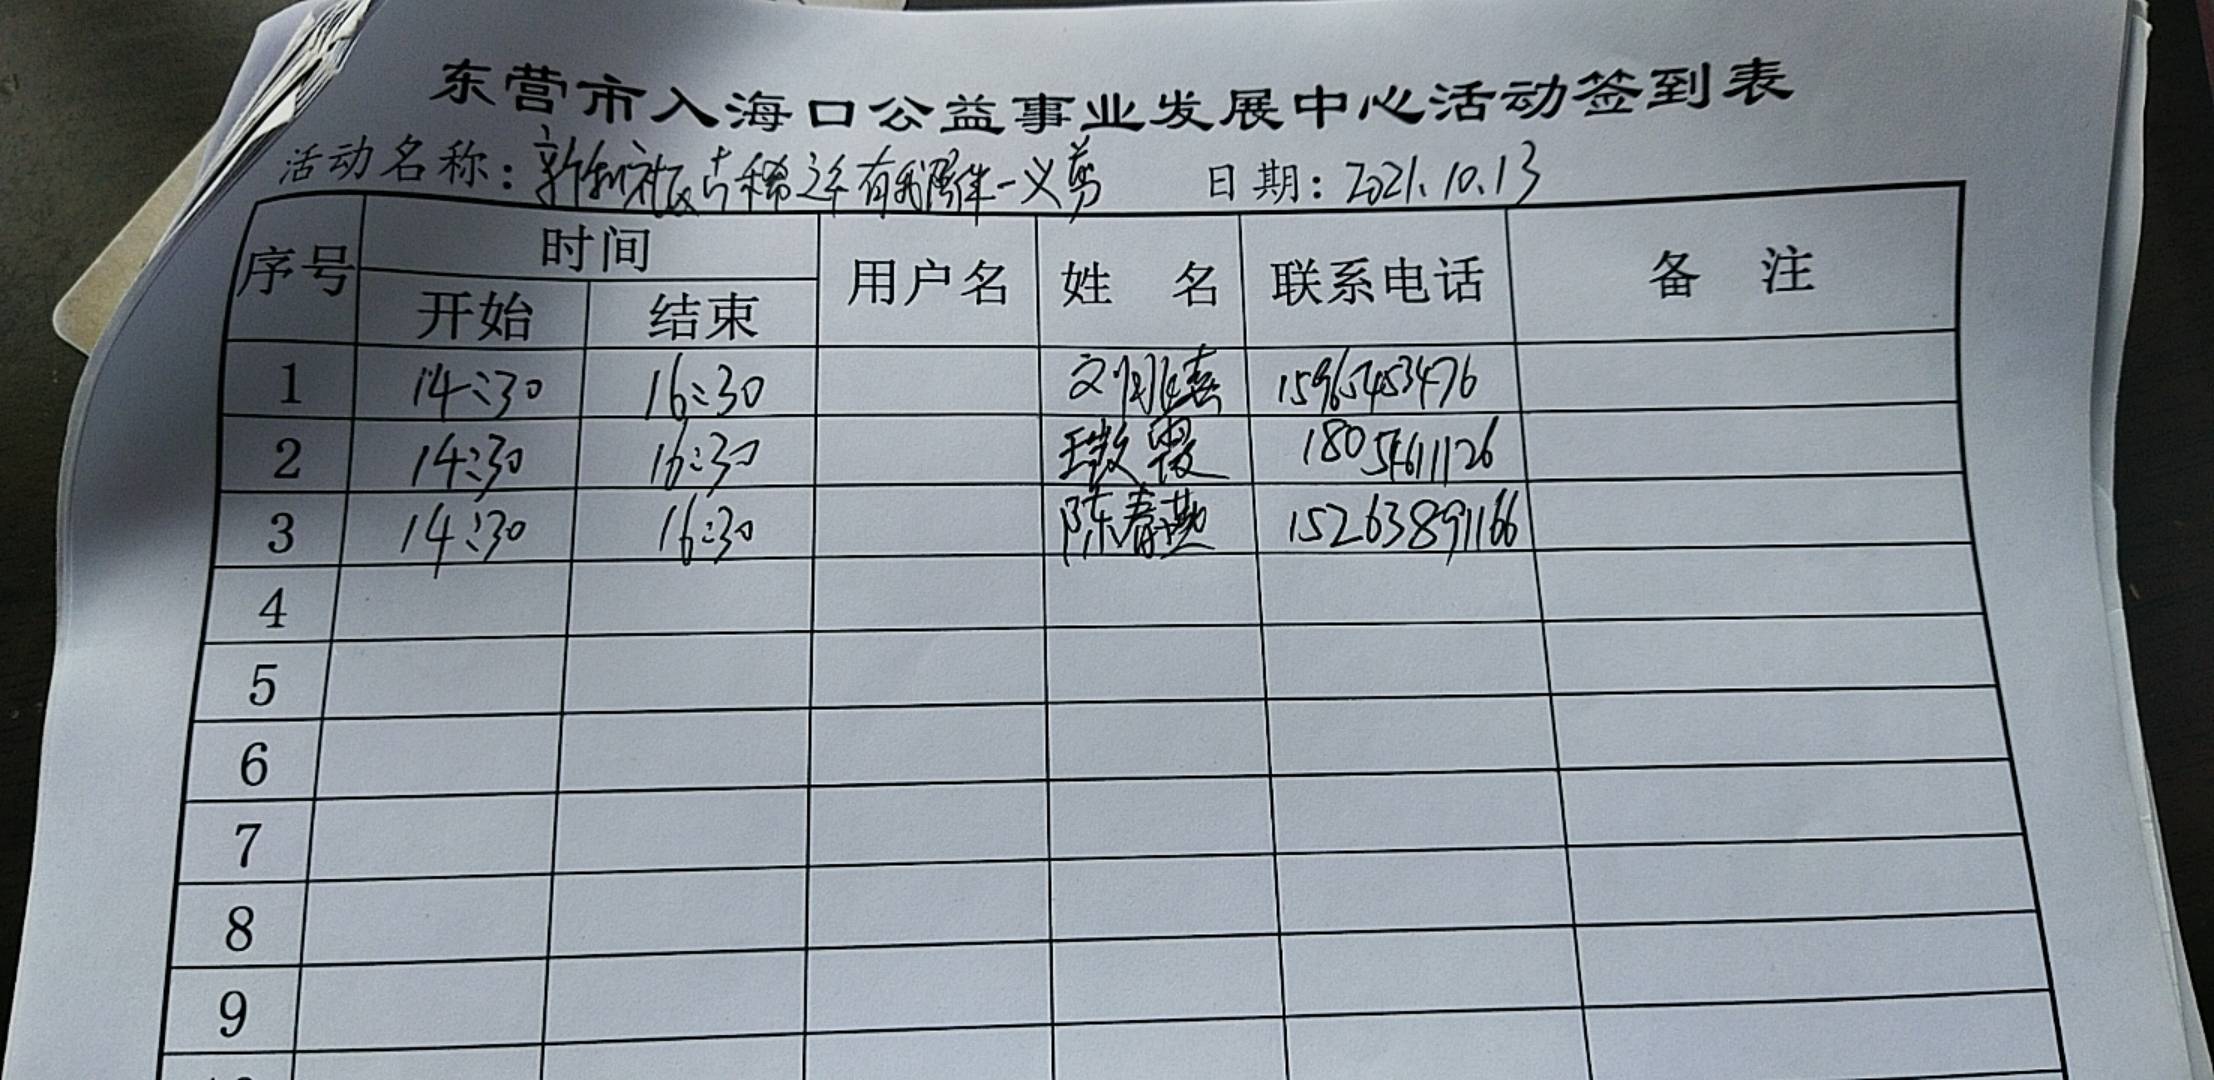 东营市入海口公益事业发展中心活动签到表
活动名称：古稀之年有我陪伴-义剪 日期：2021.10.13
序号 时间 用户名 姓名 联系电话 备注
开始 结束
1 14:30 16:30 15965453476
2 14:30 16:30 18054611126
3 14:30 16:30 陈春燕 15263891166
4
5
6
7
8
9